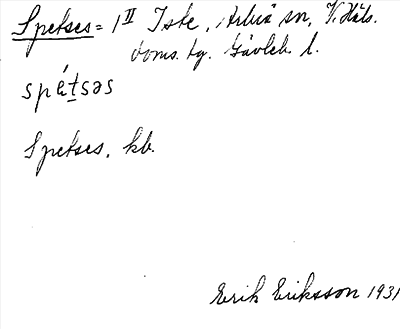 Spekses = 1 II Iste, Arbrå sn, V. Häls.
doms. tg. Gävleb. l.
spétsəs
Spekses, kb.
Erik Eriksson 1931